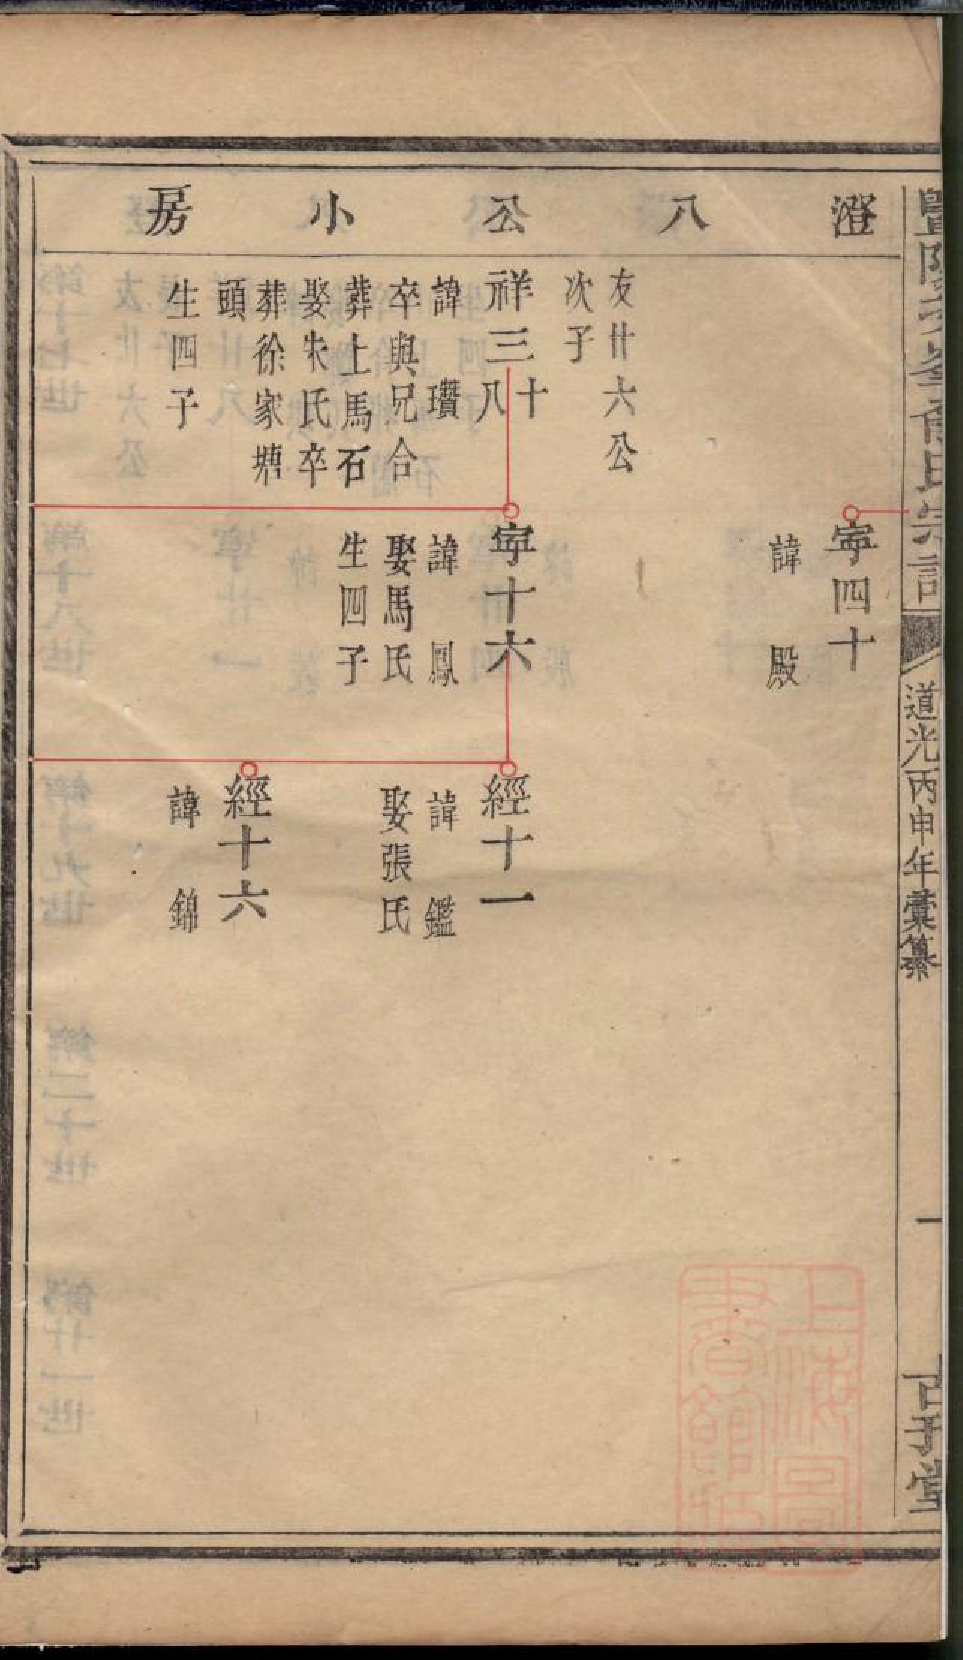 澄八公小房
友廿六公
次子
祥三十八
諱瓚
卒與兄合
葬上馬石
娶朱氏卒
葬徐家塘
頭
生四子
寕四十
諱殿
寕十六
諱鳳
娶馬氏
生四子
經十一
諱鑑
娶張氏
經十六
諱錦
道光丙申年彙纂
一
上海圖
書館藏